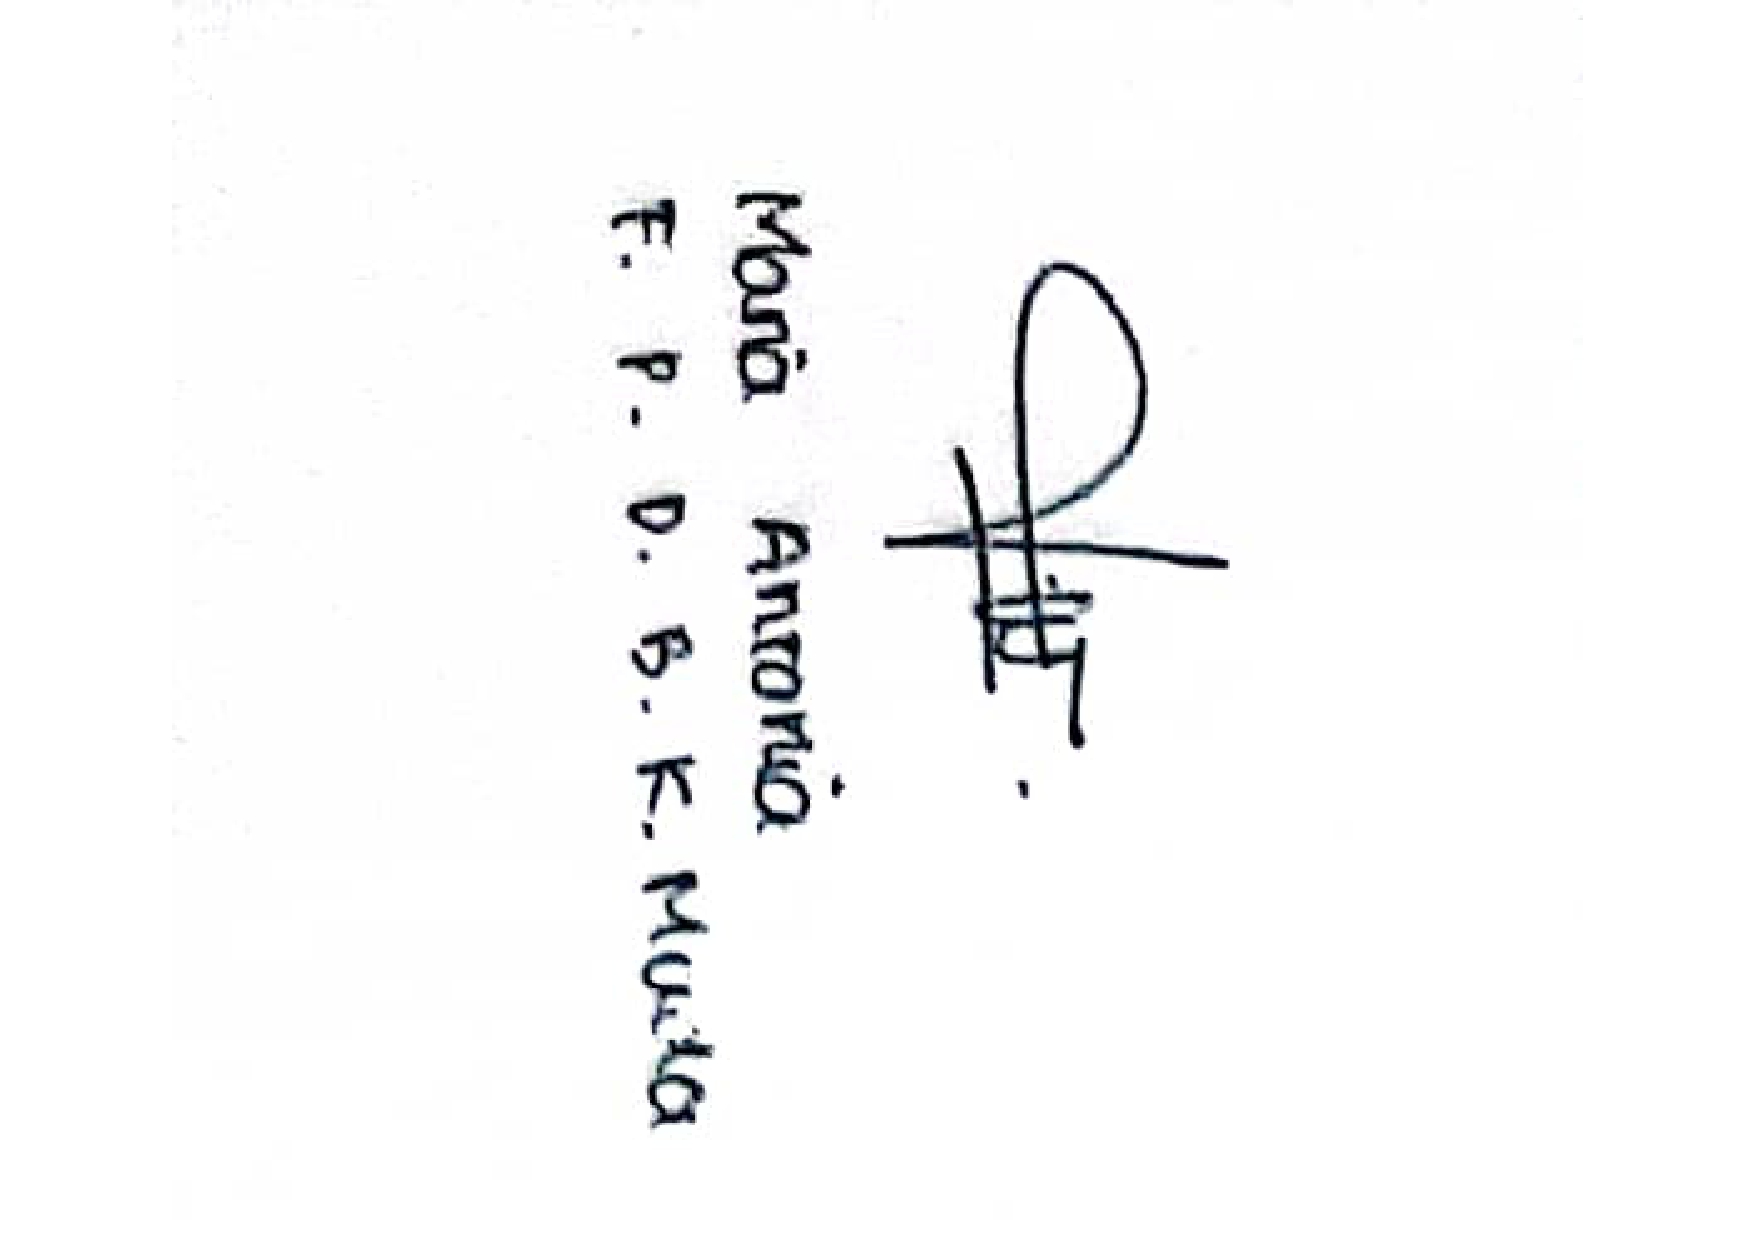 Maria Antonia
F. P. D. B. K. Muita